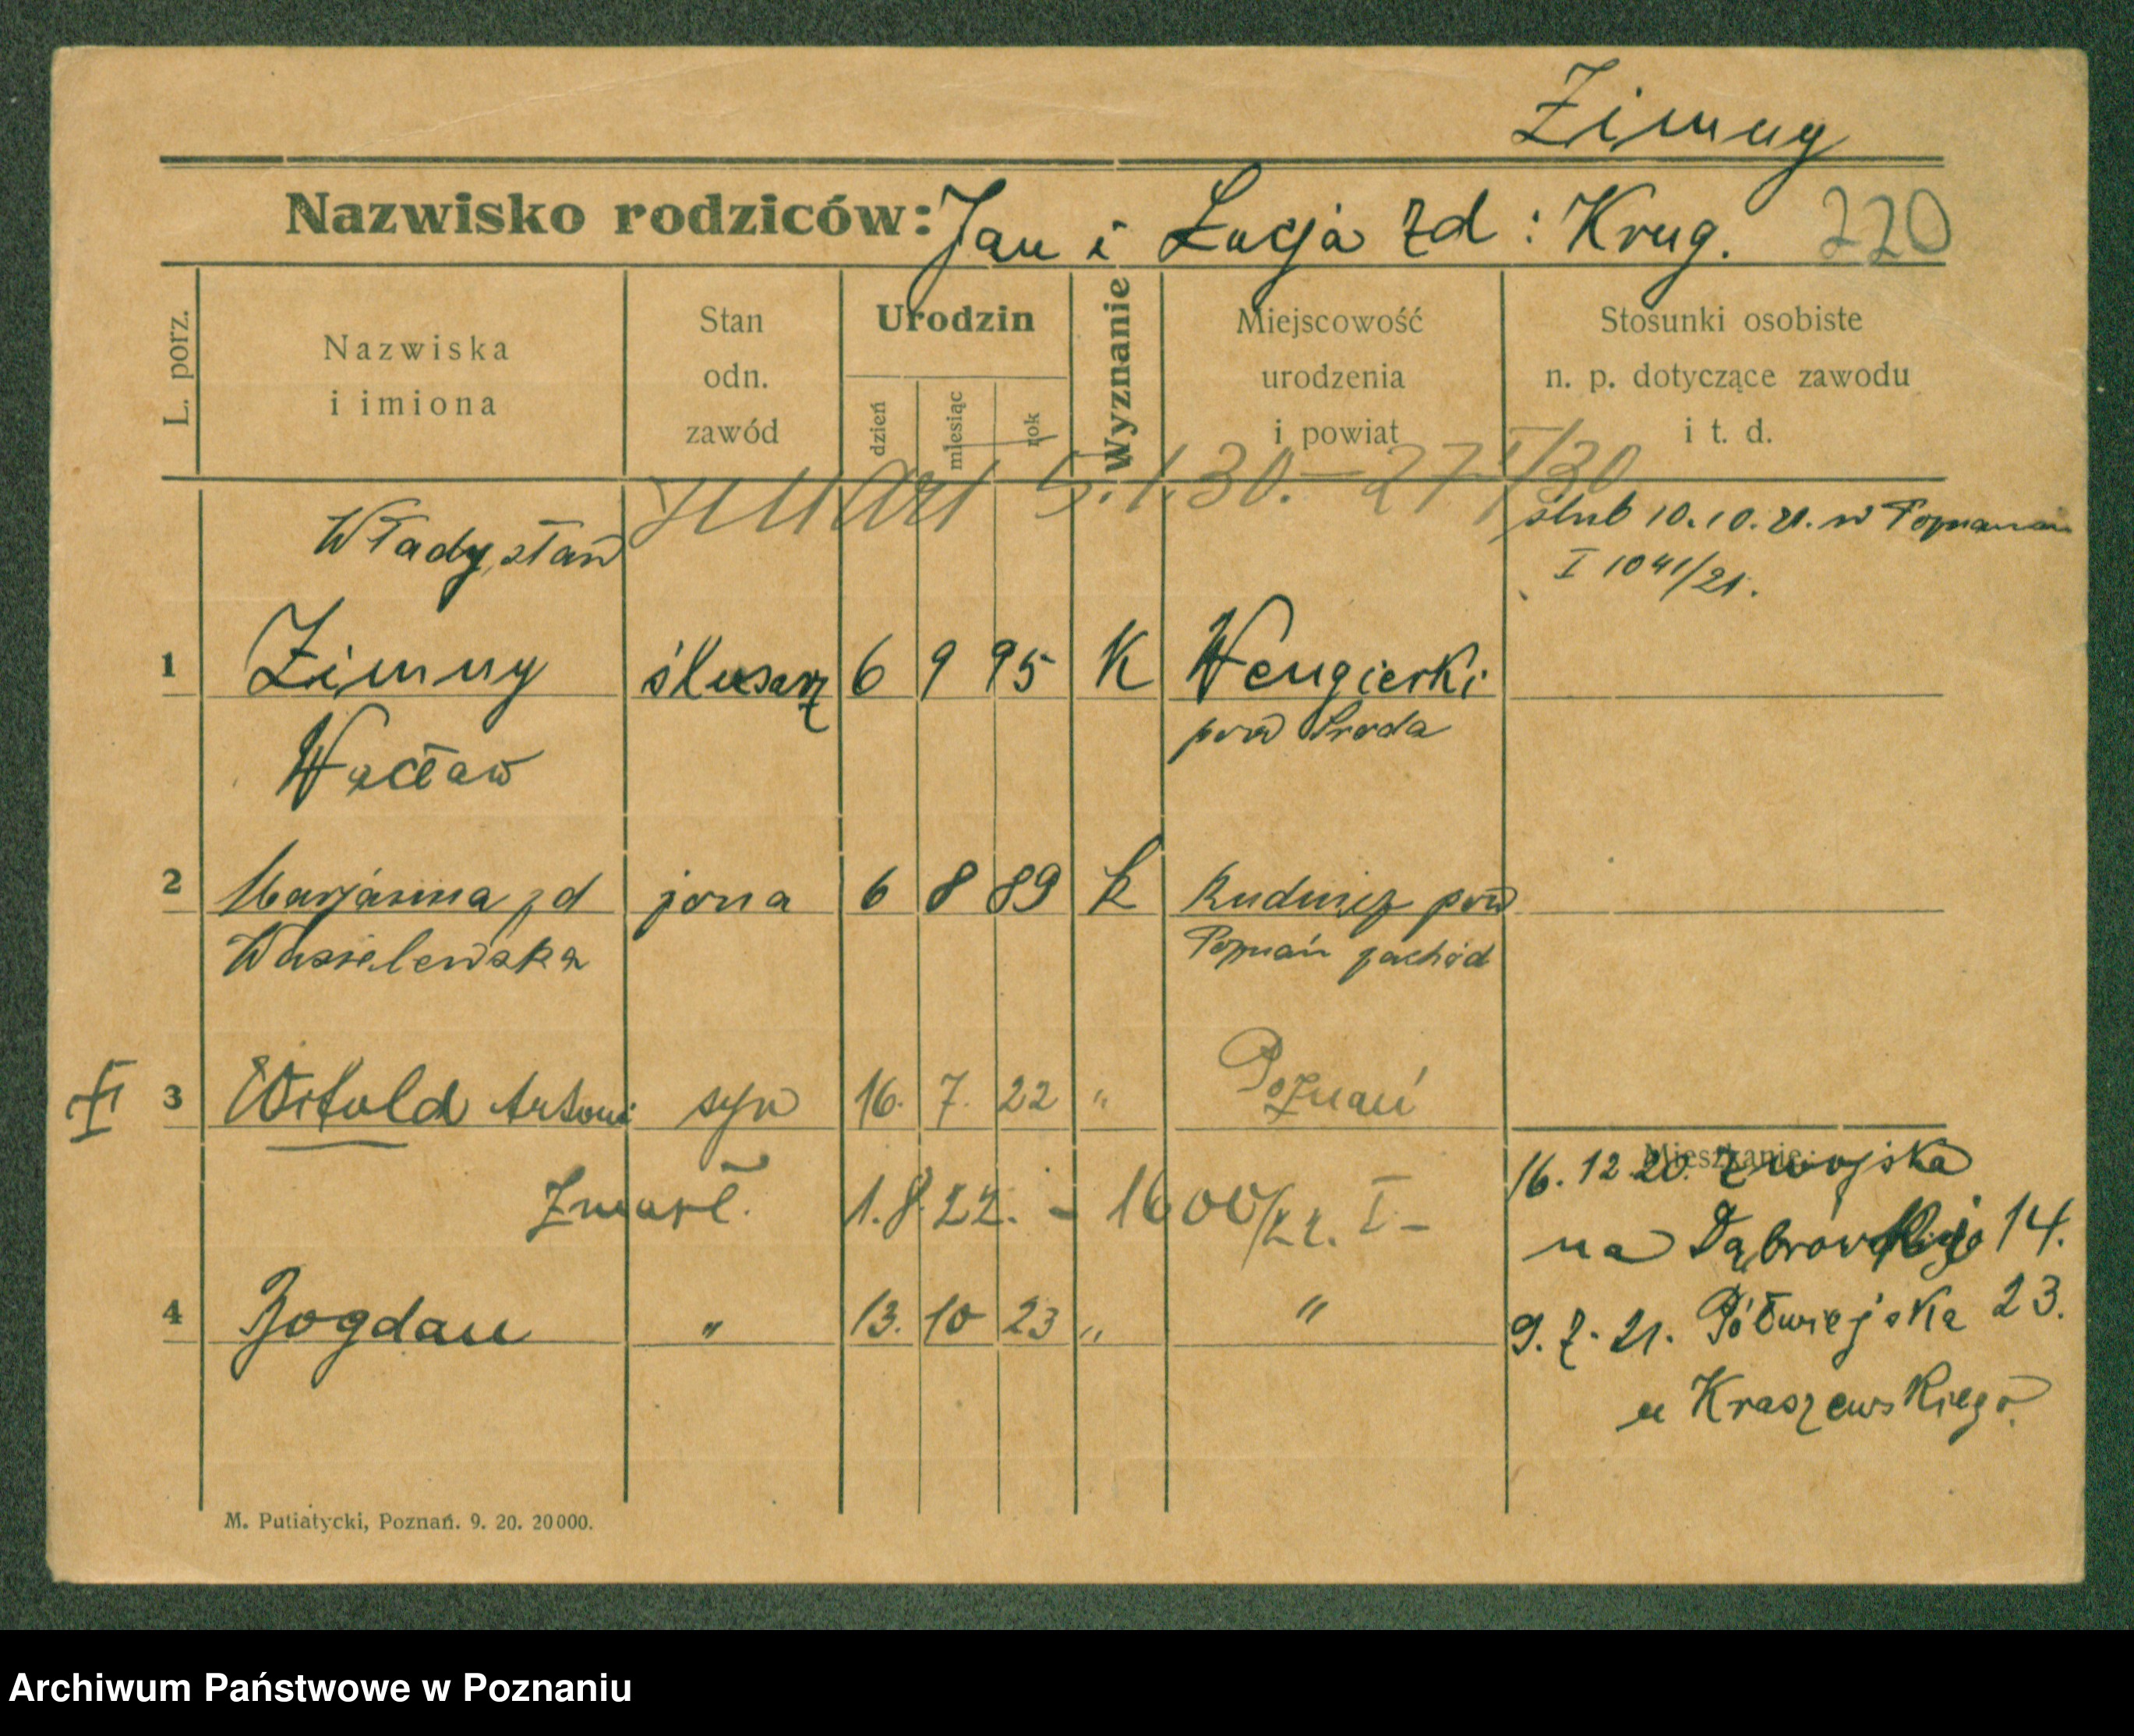 Zimny
Nazwisko rodziców: Jan i Łucja zd: Krug. 220
L. porz.
Nazwiska i imiona
Stan odn. zawód
Urodzin
dzień miesiąc rok
Wyznanie
Miejscowość urodzenia i powiat
Stosunki osobiste n. p. dotyczące zawodu i t. d.
zmarł 5.1.30. – 27 I/30
ślub 10.10.21. w Poznaniu
I 1041/21.
Władysław
1 Zimny ślusarz 6 9 95 K Wengierki
pow Środa
Wacław
2 Marjanna zd żona 6 8 89 k Rudnicz pow
Wasielewska Poznań zachód
3 Witold Antoni syn 16. 7. 22 " Poznań
Mieszkanie:
16.12.20. z wojska
Zmarł. 1.8.22. – 1600/22. I –
na Dąbrowskiego 14.
4 Bogdan " 13. 10 23 " "
9.7.21. Półwiejska 23.
u Kraszewskiego.
M. Putiatycki, Poznań. 9. 20. 20000.
Archiwum Państwowe w Poznaniu